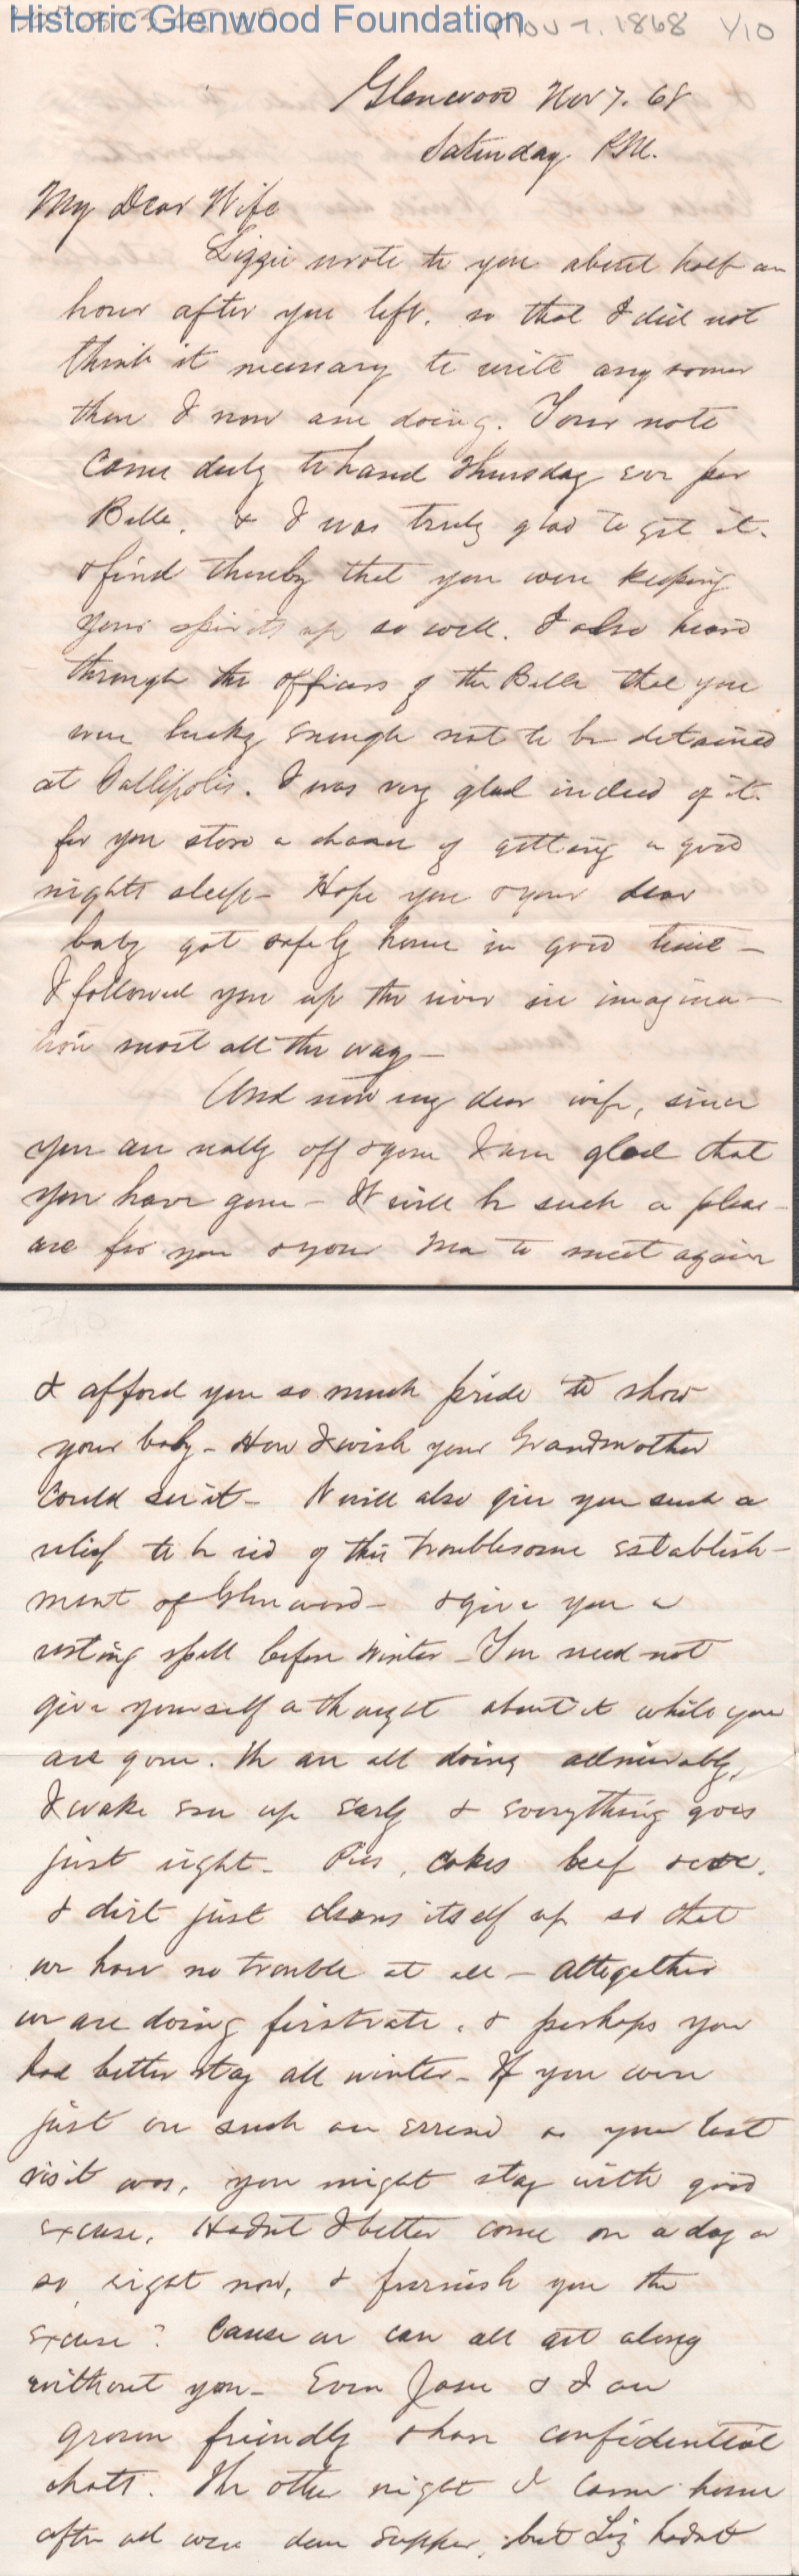 Historic Glenwood Foundation
Nov 7, 1868 1/10
Glenwood Nov 7. 68
Saturday P.M.
My Dear Wife
Lizzie wrote to you about half an
hour after you left. so that I did not
think it necessary to write any sooner
than I now am doing. Your note
came duly to hand Thursday eve per
Belle. & I was truly glad to get it.
& find thereby that you were keeping
your spirits up so well. I also heard
through the officers of the Belle that you
were lucky enough not to be detained
at Gallipolis. I was very glad indeed of it.
for you stood a chance of getting a good
nights sleep - Hope you & your dear
baby got safely home in good time -
I followed you up the river in imagina-
tion most all the way -
And now my dear wife, since
you are really off & gone I am glad that
you have gone - It will be such a pleas-
ure for you & your Ma to meet again
2/10
& afford you so much pride to show
your baby - How I wish your Grandmother
could see it - It will also give you such a
relief to be rid of this troublesome establish-
ment of Glenwood - & give you a
resting spell before winter - You need not
give yourself a thought about it while you
are gone. We are all doing admirably,
I wake up early & everything goes
just right - Pies, cakes beef &c &c.
& dirt just cleans itself up so that
we have no trouble at all - altogether
we are doing firstrate. & perhaps you
had better stay all winter - If you were
just on such an errand as your last
visit was, you might stay with good
excuse. Hadnt I better come on a day or
so, right now, & furnish you the
excuse? Cause we can all get along
without you - Even & I are
grown friendly & have confidential
chats. The other night I came home
after all were done supper, but Liz hadnt